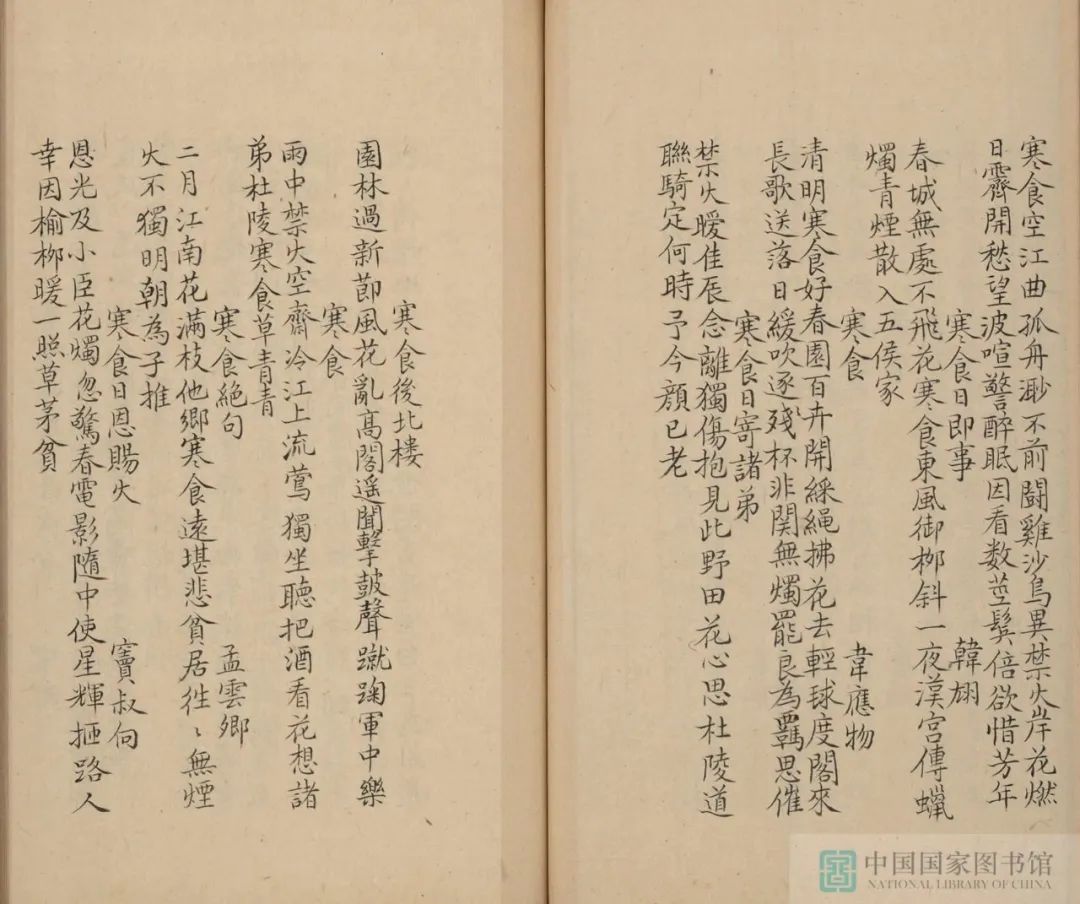 寒食空江曲孤舟渺不前鬪雞沙鳥異禁火岸花燃
日霽開愁望波喧警醉眠因看数莖鬂倍欲惜芳年
寒食日即事 韓翃
春城無處不飛花寒食東風御栁斜一夜漢宫傳蠟
燭青煙散入五侯家
寒食 韋應物
清明寒食好春園百卉開綵繩拂花去輕球度閣來
長歌送落日緩吹逐殘杯非関無燭罷良為羈思催
寒食日寄諸弟
禁火曖佳辰念離獨傷抱見此野田花心思杜陵道
聯騎定何時予今顔已老
寒食後北楼
園林過新節風花亂高閣遥聞擊皷聲蹴踘軍中樂
寒食
雨中禁火空齋冷江上流鶯獨坐聽把酒看花想諸
弟杜陵寒食草青青
寒食絶句 孟雲卿
二月江南花滿枝他鄉寒食遠堪悲貧居徃〻無煙
火不獨明朝為子推
寒食日恩賜火 竇叔向
恩光及小臣花燭忽驚春電影隨中使星輝拒路人
幸因榆栁暖一照草茅貧
中国国家图书馆
NATIONAL LIBRARY OF CHINA